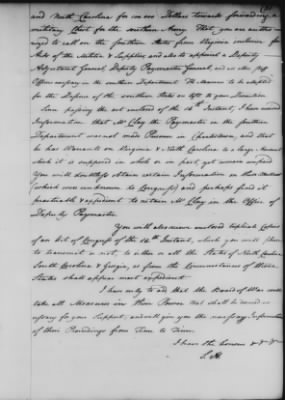 and North Carolina for 100,000 Dollars towards forwarding a
military Chest for the southern Army That you are autho
rized to call on the southern States from Virginia southward for
Aids of the Militia & Supplies and also to appoint a Deputy
Adjutant General, Deputy Paymaster General and an other Staff
Officers necessary in the southern Department The Measures to be adopted
for the Defence of the southern States are left to your Discretion
Since passing the Act enclosed of the 14th Instant, I have received
Information that Mr Clay the Paymaster in the southern
Department was not made Prisoner in Charlestown, and that
he has Warrants on Virginia & North Carolina to a large Amount
which it is supposed in whole or in part yet remain unpaid
You will doubtless obtain certain Information on that Matter
(which was unknown to Congress) and perhaps find it
practicable & expedient to retain Mr Clay in the Office of
Deputy Paymaster
You will also receive enclosed triplicate Copies
of an Act of Congress of the 14th Instant, which you will please
to transmit or not, to either or all the States of North Carolina
South Carolina & Georgia, as from the Circumstances of those
States shall appear most expedient
I have only to add that the Board of War will
take all Measures in their Power that shall be deemed ne
cessary for your Support, and will give you the necessary Information
of their Proceedings from Time to Time.
I have the honour &c &c &c
S. H.